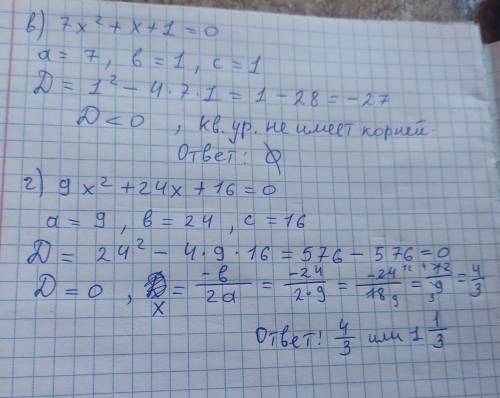 в) 7x² + x + 1 = 0
a = 7, в = 1, c = 1
D = 1² - 4·7·1 = 1 - 28 = -27
D < 0, кв. ур. не имеет корней.
Ответ: ∅
г) 9x² + 24x + 16 = 0
a = 9, в = 24, c = 16
D = 24² - 4·9·16 = 576 - 576 = 0
D = 0, x = -в/2a = -24/2·9 = -24/18 = 12/9 = 4/3
Ответ: 4/3 или 1 1/3